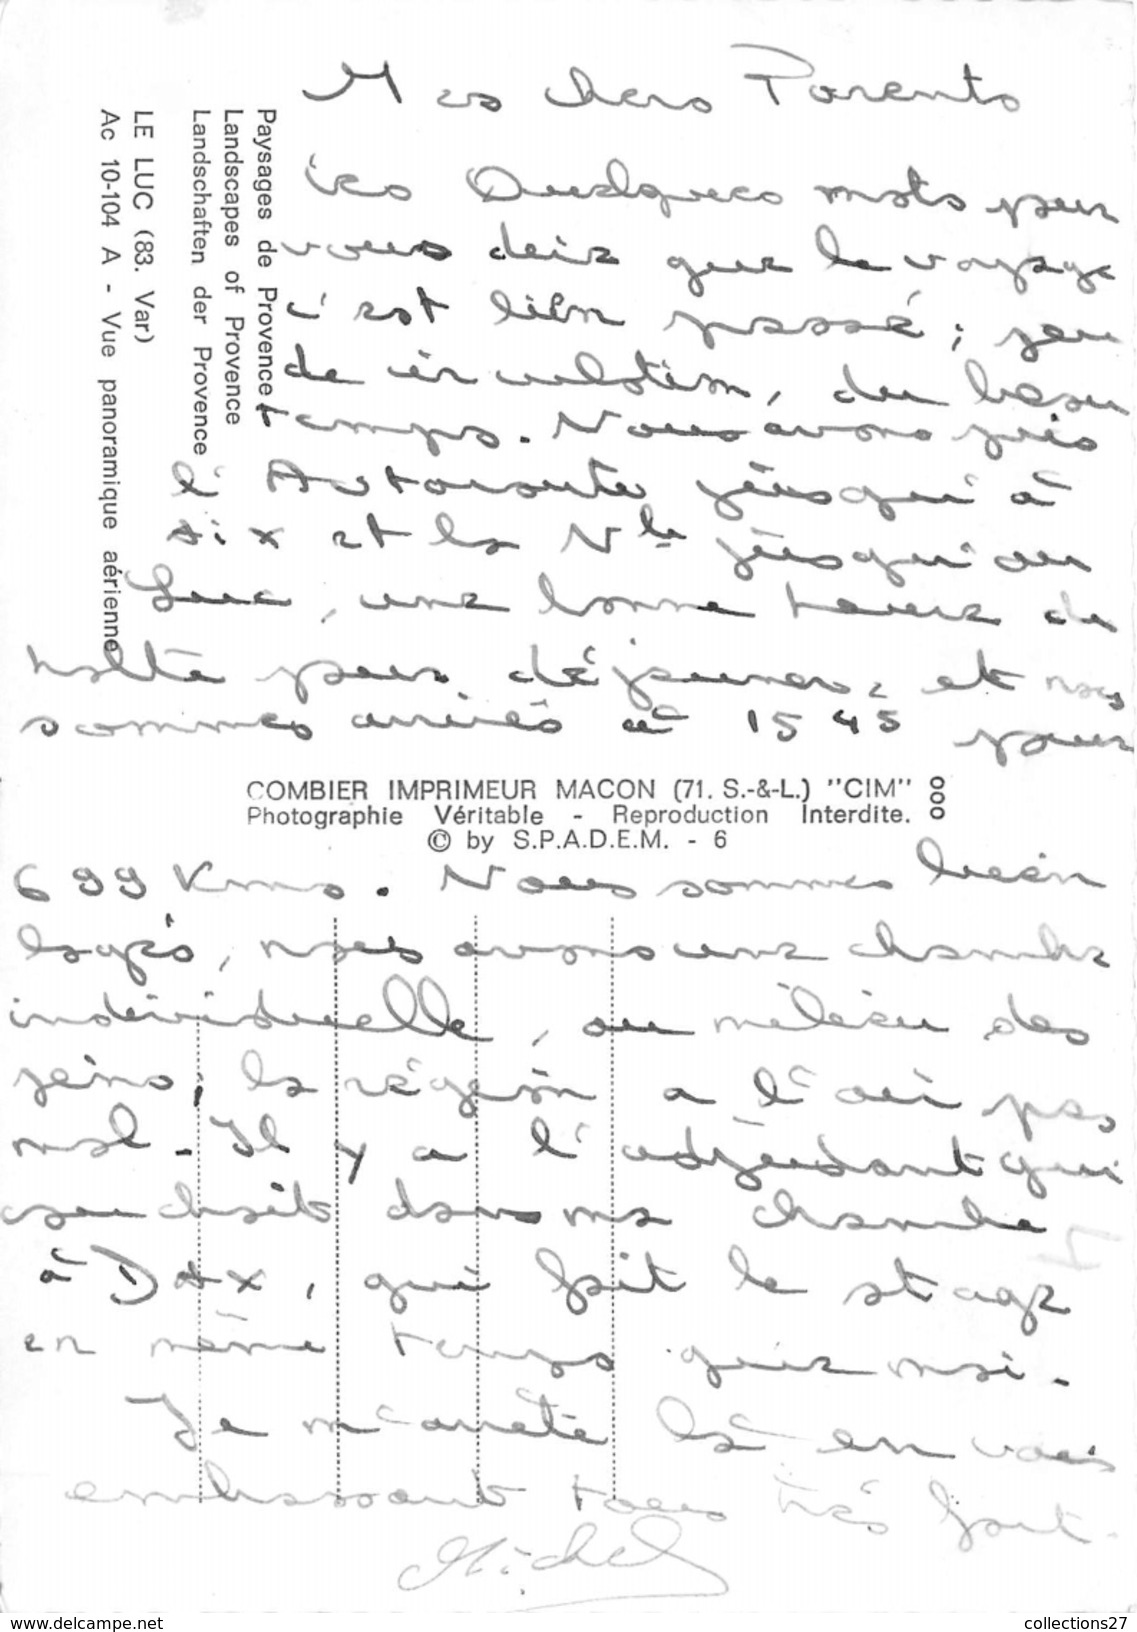 Mes chers Parents
ici Quelques mots pour
vous dire que le voyage
s'est bien passé ; peu
de circulation, du beau
temps. Nous avons pris
l'Autoroute jusqu'à
Aix et la Nle jusqu'au
Luc, une bonne heure de
halte pour déjeuner, et nous
sommes arrivés à 15 45 pour
699 Kms. Nous sommes bien
logés, nous avons une chambre
individuelle, au milieu des
pins, la région a l'air pas
mal. Il y a l'adjudant qui
couchait dans ma chambre
à Dax, qui fait le stage
en même temps que moi.
Je m'arrête là en vous
embrassant tous très fort.
Michel
Paysages de Provence
Landscapes of Provence
Landschaften der Provence
LE LUC (83. Var)
Ac 10-104 A - Vue panoramique aérienne
COMBIER IMPRIMEUR MACON (71. S.-&-L.) "CIM"
Photographie Véritable - Reproduction Interdite.
© by S.P.A.D.E.M. - 6
www.delcampe.net
collections27